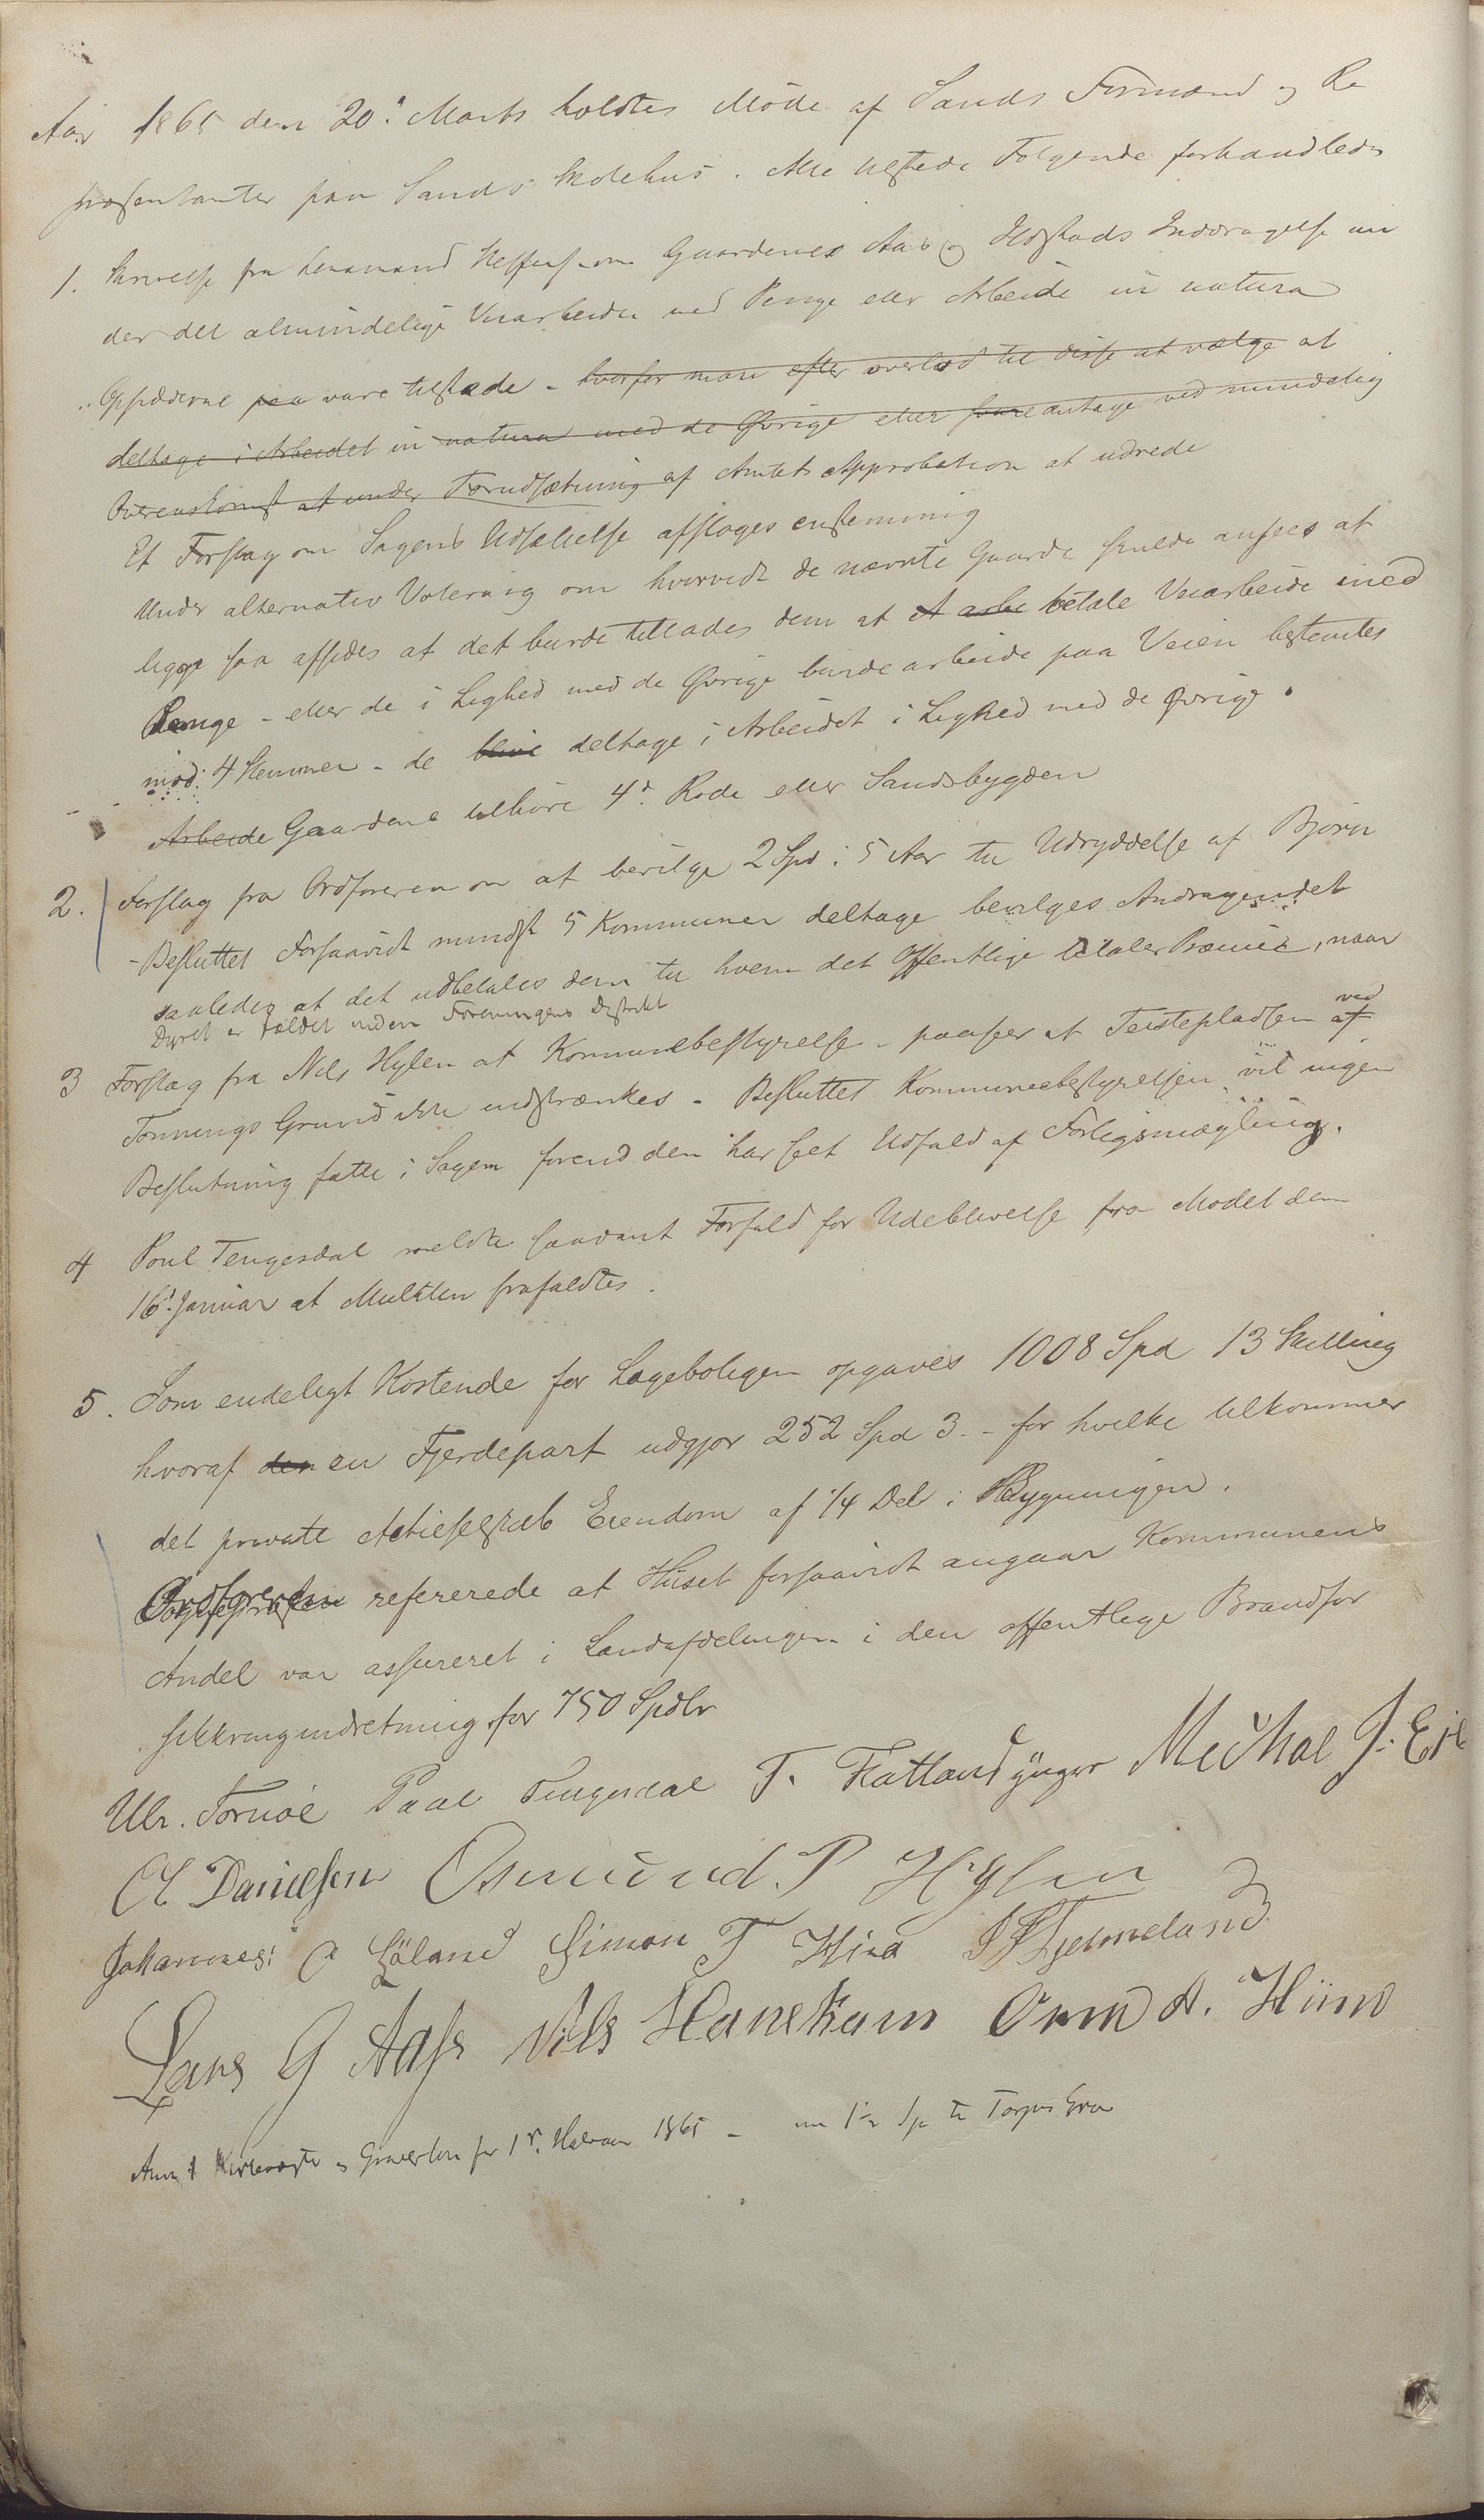 Aar 1865 den 20de Marts holdtes Møde af Sands Formænd og Re
præsentanter paa Sands Skolehus. Alle tilstede Følgende forhandledes
1. Skrivelse fra Lensmand om Gaardenes Aas og Inddragelse un
der det almindelige Veiarbeide med Penge eller Arbeide in natura
Opsidderne paa vare tilstede - hvorfor man efter overlod til disse at vælge at
deltage i Arbeidet in natura med de Øvrige eller antage ved mindelig
Overenskomst at under Forudsætning af Amtets Approbation at udrede
Et Forslag om Sagens Udsættelse afsloges enstemmig
Under alternativ Votering om hvorvidt de nævnte Gaarde skulde ansees at
ligge saa afsides at det burde tillades dem at A arbe betale Veiarbeide med
Penge - eller de i Lighed med de Øvrige burde arbeide paa Veien bestemtes
mod 4 Stemmer - de blive deltage i Arbeidet i Lighed med de Øvrige.
Arbeide Gaardene tilhøre 4de Rode eller Sandsbygden
2. Forslag fra Ordføreren om at bevilge 2 Spd i 5 Aar til Udryddelse af Bjørn
- Besluttet Forsaavidt mindst 5 Kommuner deltage bevilges Andragendet
saaledes at det udbetales dem til hvem det Offentlige betaler Præmie, naar
Dyret er fældet inden Foreningens Distrikt
3 Forslag fra Nils Hylen at Kommunebestyrelse - paaseer at Teistepladsen af ved
Tonnings Grund ikke indskrænkes - Besluttet Kommunebestyrelsen vil ingen
Beslutning fatte i Sagen førend den har seet Udfald af Forligsmægling.
4 Poul Tengesdal meldte saadant Forfald for Udeblivelse fra Mødet den
16de Januar at Mulkten frafaldtes.
5. Som endeligt Kostende for Lægeboligen opgaves 1008 Spd 13 Skilling
hvoraf den en Fjerdepart udgjør 252 Spd 3 - for hvilke tilkommer
det private Actieselskab Eiendom af 1/4 Del i Bygningen.
Ordføreren refererede at Huset forsaavidt angaar Kommunens
Andel var assureret i Landafdelingen i den offentlige Brandfor
sikkringindretning for 750 Spdlr
Ulr. Tornøe Paal Tengesdal T. Fatland yngre Michal J. Eie
Cl Danielsen Osmund. P Hylen
Johannes: O Høland Simon T Hiia Hjelmeland
Lars G Aass Nils Hanekam Orm A. Hiim
Anm 1 og Graverløn for 1r. Halvaar 1865 -